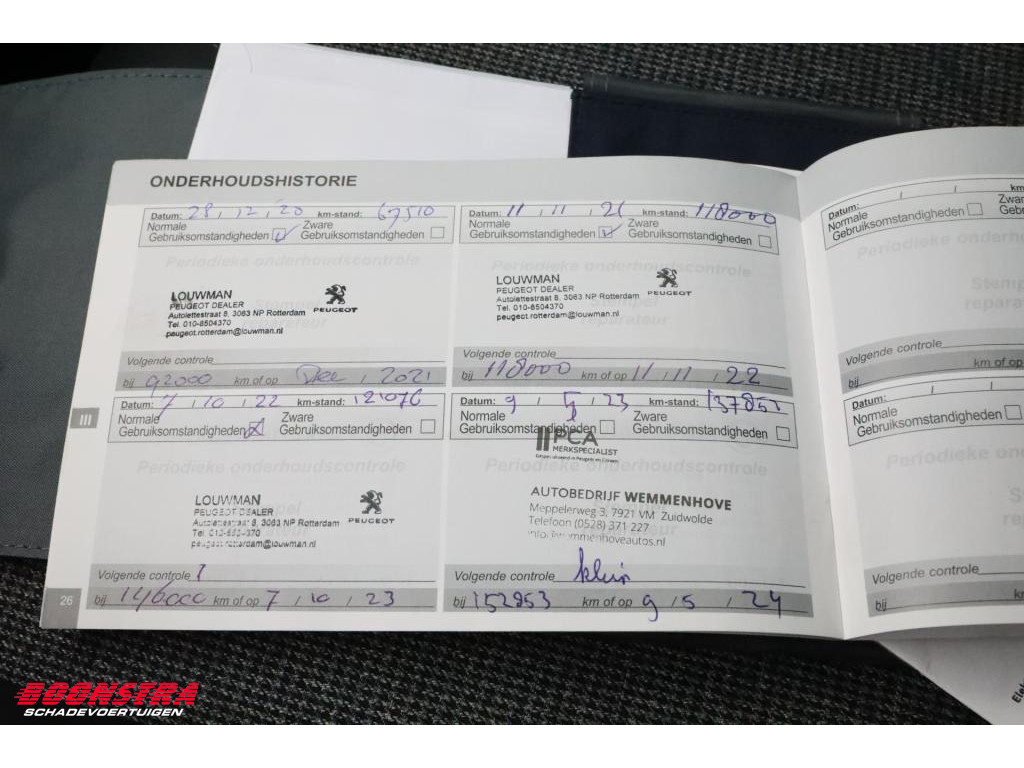 ONDERHOUDSHISTORIE
Datum: 28 / 12 / 20 km-stand: 67510
Normale Zware
Gebruiksomstandigheden Gebruiksomstandigheden
Periodieke onderhoudscontrole
LOUWMAN
PEUGEOT DEALER
Autolettestraat 8, 3063 NP Rotterdam
Tel. 010-8504370
peugeot.rotterdam@louwman.nl
PEUGEOT
Volgende controle
bij 92000 km of op Dec / 2021
Datum: 11 / 11 / 21 km-stand: 118000
Normale Zware
Gebruiksomstandigheden Gebruiksomstandigheden
Periodieke onderhoudscontrole
LOUWMAN
PEUGEOT DEALER
Autolettestraat 8, 3063 NP Rotterdam
Tel. 010-8504370
peugeot.rotterdam@louwman.nl
PEUGEOT
Volgende controle
bij 118000 km of op 11 / 11 / 22
III
Datum: 7 / 10 / 22 km-stand: 121076
Normale Zware
Gebruiksomstandigheden Gebruiksomstandigheden
Periodieke onderhoudscontrole
LOUWMAN
PEUGEOT DEALER
Autolettestraat 8, 3063 NP Rotterdam
Tel. 010-8504370
peugeot.rotterdam@louwman.nl
PEUGEOT
Volgende controle
bij 146000 km of op 7 / 10 / 23
Datum: 9 / 5 / 23 km-stand: 137853
Normale Zware
Gebruiksomstandigheden Gebruiksomstandigheden
PCA
MERKSPECIALIST
Periodieke onderhoudscontrole
AUTOBEDRIJF WEMMENHOVE
Meppelerweg 3, 7921 VM Zuidwolde
Telefoon (0528) 371 227
info@wemmenhoveautos.nl
Volgende controle klein
bij 152853 km of op 9 / 5 / 24
26
Datum: / /
Normale
Gebruiksomstandigheden
Volgende controle
bij km of op
Datum: / /
Normale
Gebruiksomstandigheden
Volgende controle
bij
BOONSTRA
SCHADEVOERTUIGEN